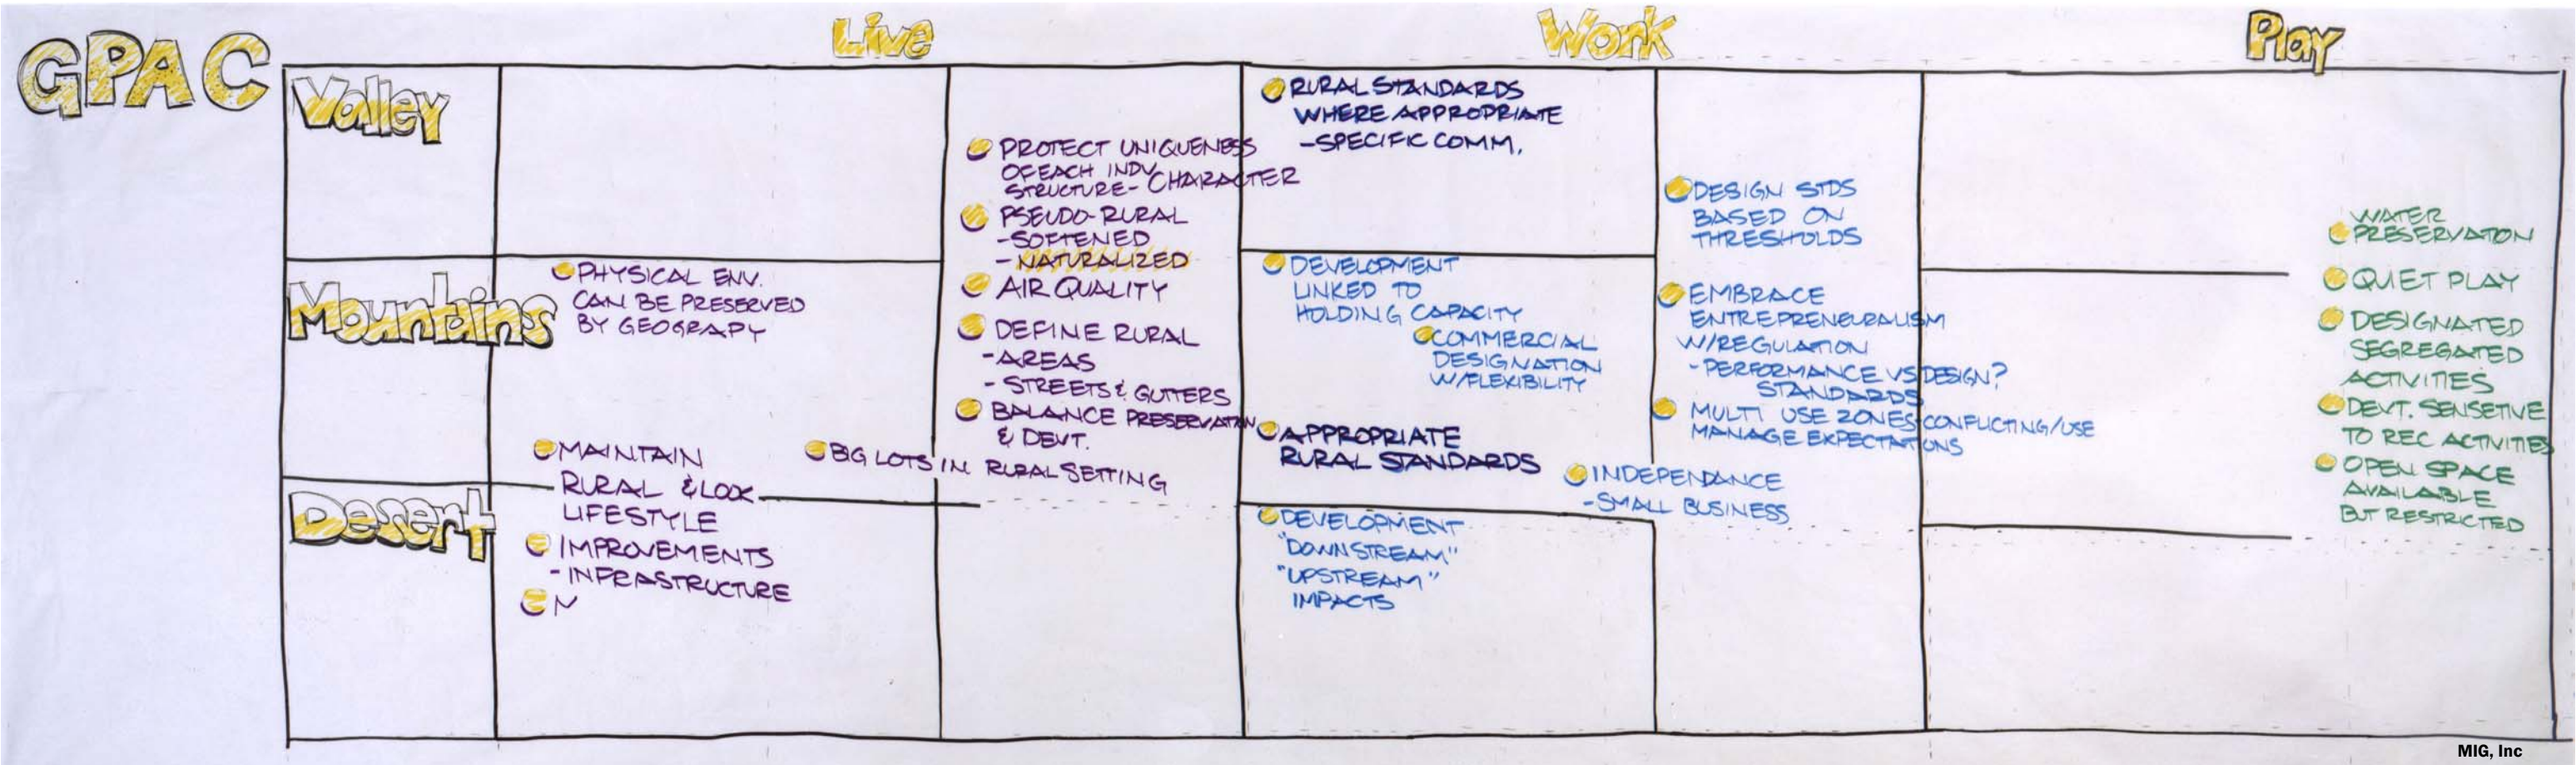 GPAC
Live
Work
Play
Valley
Mountains
Desert
PHYSICAL ENV.
CAN BE PRESERVED
BY GEOGRAPY
MAINTAIN
RURAL & LOOK
LIFESTYLE
IMPROVEMENTS
-INFRASTRUCTURE
N
BG LOTS IN RURAL SETTING
PROTECT UNIQUENESS
OF EACH INDV
STRUCTURE- CHARACTER
PSEUDO-RURAL
-SOFTENED
-NATURALIZED
AIR QUALITY
DEFINE RURAL
-AREAS
-STREETS & GUTTERS
BALANCE PRESERVATION
& DEVT.
RURAL STANDARDS
WHERE APPROPRIATE
-SPECIFIC COMM.
DEVELOPMENT
LINKED TO
HOLDING CAPACITY
COMMERCIAL
DESIGNATION
W/FLEXIBILITY
APPROPRIATE
RURAL STANDARDS
INDEPENDANCE
-SMALL BUSINESS
DEVELOPMENT
"DOWNSTREAM"
"UPSTREAM"
IMPACTS
DESIGN STDS
BASED ON
THRESHOLDS
EMBRACE
ENTREPRENEURALISM
W/REGULATION
-PERFORMANCE VS DESIGN?
STANDARDS
MULTI USE ZONES CONFLICTING/USE
MANAGE EXPECTATIONS
WATER
PRESERVATION
QUIET PLAY
DESIGNATED
SEGREGATED
ACTIVITIES
DEVT. SENSETIVE
TO REC ACTIVITIES
OPEN SPACE
AVAILABLE
BUT RESTRICTED
MIG, Inc